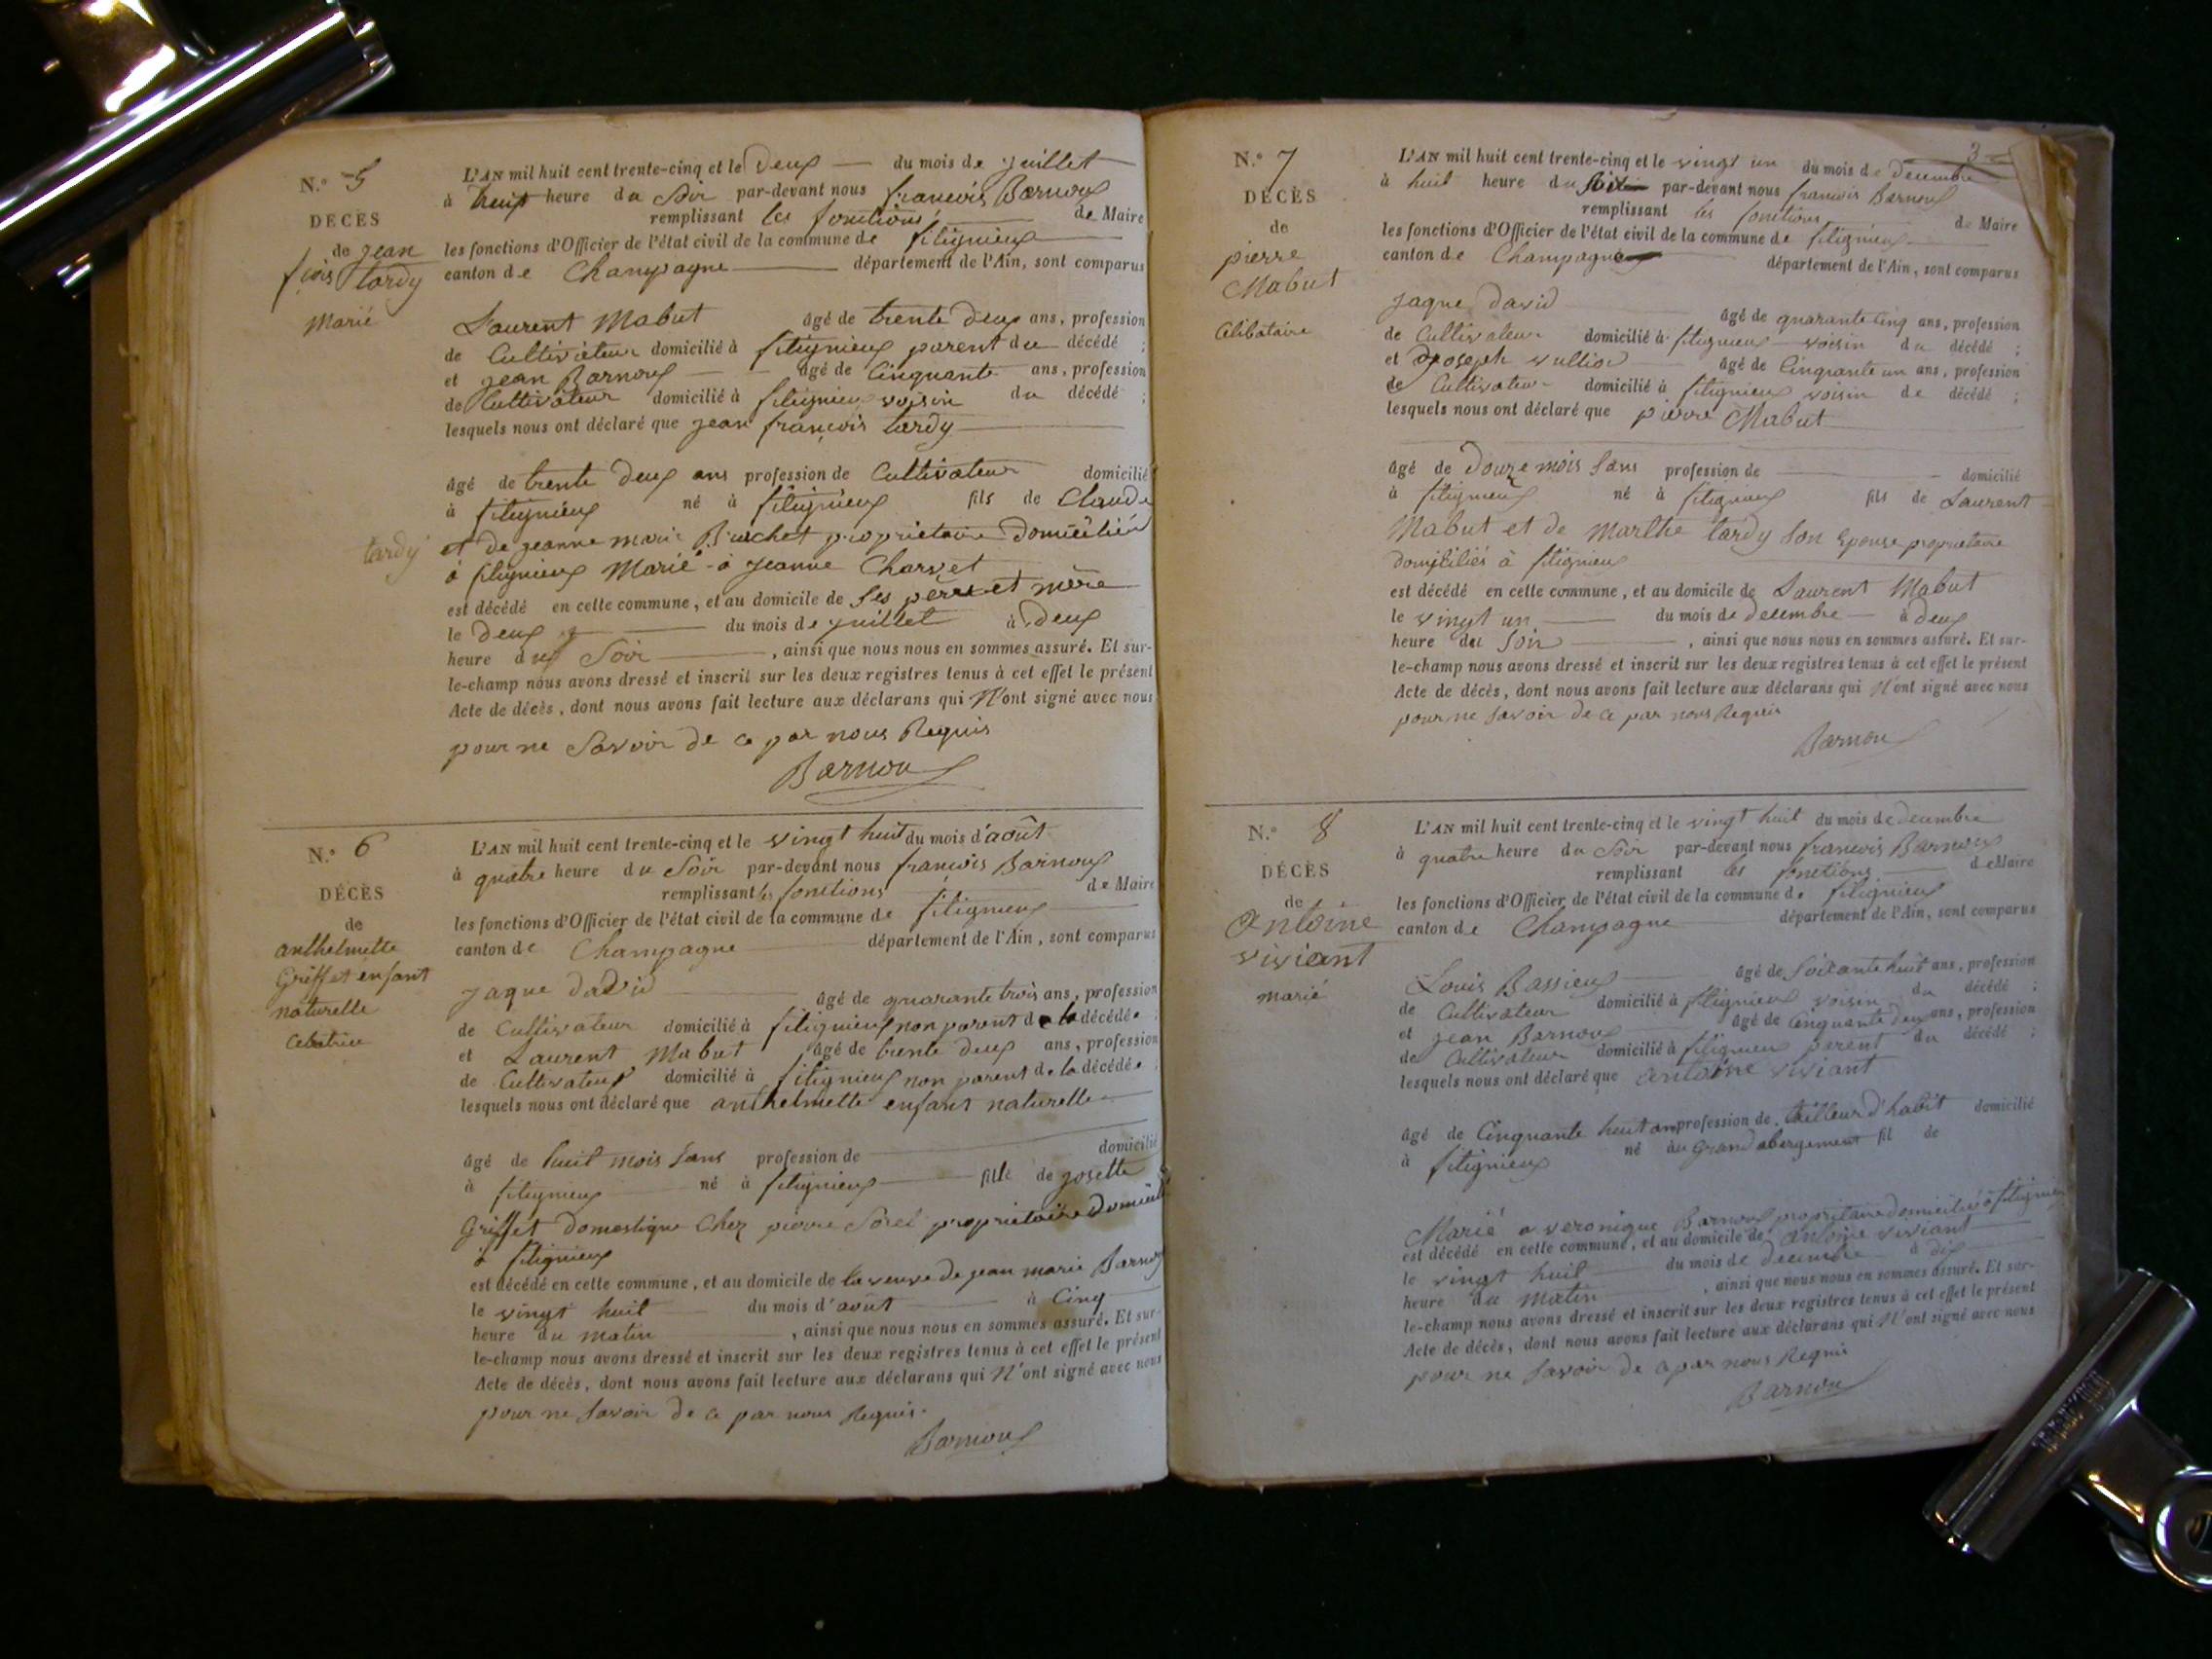 N.° 5
DÉCÈS
de Jean
fcois tardy
Marié
L'AN mil huit cent trente-cinq et le Deux du mois de juillet
à heure du Soir par-devant nous francois Barnoux
remplissant les fonctions de Maire
les fonctions d'Officier de l'état civil de la commune de fitignieux
canton de Champagne département de l'Ain, sont comparus
Laurent Mabut âgé de trente deux ans, profession
de Cultivateur domicilié à fitignieux parent du décédé ;
et jean Barnoux âgé de Cinquante ans, profession
de Cultivateur domicilié à fitignieux voisin du décédé ;
lesquels nous ont déclaré que jean françois tardy
âgé de trente deux ans profession de Cultivateur domicilié
à fitignieux né à fitignieux fils de Claude
tardy et de jeanne marie Brachet propriétaire Domicilié
à fitignieux Marié à Jeanne Charvet
est décédé en cette commune, et au domicile de ses père et mère
le Deux du mois de juillet à deux
heure du Soir , ainsi que nous nous en sommes assuré. Et sur-
le-champ nous avons dressé et inscrit sur les deux registres tenus à cet effet le présent
Acte de décès, dont nous avons fait lecture aux déclarans qui N'ont signé avec nous
pour ne Savoir de ce par nous Requis
Barnoux
N.° 6
DÉCÈS
de
anthelmette
Griffet enfant
naturelle
L'AN mil huit cent trente-cinq et le vingt huit du mois d'août
à quatre heure du Soir par-devant nous francois Barnoux
remplissant les fonctions de Maire
les fonctions d'Officier de l'état civil de la commune de fitignieux
canton de Champagne département de l'Ain, sont comparus
jaque david âgé de quarante trois ans, profession
de Cultivateur domicilié à fitignieux non parent de la décédée ;
et Laurent Mabut âgé de trente deux ans, profession
de Cultivateur domicilié à fitignieux non parent de la décédée ;
lesquels nous ont déclaré que anthelmette enfant naturelle
âgé de huit mois sans profession de domicilié
à fitignieux né à fitignieux fille de josette
Griffet domestique Chez pierre Sorel propriétaire Domicilié
à fitignieux
est décédé en cette commune, et au domicile de la veuve de jean marie Barnoux
le vingt huit du mois d'août à Cinq
heure du matin , ainsi que nous nous en sommes assuré. Et sur-
le-champ nous avons dressé et inscrit sur les deux registres tenus à cet effet le présent
Acte de décès, dont nous avons fait lecture aux déclarans qui N'ont signé avec nous
pour ne savoir de ce par nous Requis.
Barnoux
3
N.° 7
DÉCÈS
de
pierre
Mabut
Célibataire
L'AN mil huit cent trente-cinq et le vingt un du mois de Decembre
à huit heure du par-devant nous francois Barnoux
remplissant les fonctions de Maire
les fonctions d'Officier de l'état civil de la commune de fitignieux
canton de Champagne département de l'Ain, sont comparus
jaque david âgé de quarante cinq ans, profession
de Cultivateur domicilié à fitignieux voisin du décédé ;
et joseph vulliod âgé de Cinquante un ans, profession
de Cultivateur domicilié à fitignieux voisin de décédé ;
lesquels nous ont déclaré que pierre Mabut
âgé de Douze mois sans profession de domicilié
à fitignieux né à fitignieux fils de Laurent
Mabut et de Marthe tardy son Epouse propriétaire
domiciliés à fitignieux
est décédé en cette commune, et au domicile de Laurent Mabut
le vingt un du mois de decembre à deux
heure du Soir , ainsi que nous nous en sommes assuré. Et sur-
le-champ nous avons dressé et inscrit sur les deux registres tenus à cet effet le présent
Acte de décès, dont nous avons fait lecture aux déclarans qui N'ont signé avec nous
pour ne savoir de ce par nous Requis
Barnoux
N.° 8
DÉCÈS
de
Antoine
viviant
marié
L'AN mil huit cent trente-cinq et le vingt huit du mois de decembre
à quatre heure du Soir par-devant nous francois Barnoux
remplissant les fonctions de Maire
les fonctions d'Officier de l'état civil de la commune de fitignieux
canton de Champagne département de l'Ain, sont comparus
Louis Bassieux âgé de soixante huit ans, profession
de Cultivateur domicilié à fitignieux voisin du décédé ;
et jean Barnoux âgé de Cinquante deux ans, profession
de Cultivateur domicilié à fitignieux parent du décédé ;
lesquels nous ont déclaré que antoine viviant
âgé de Cinquante huit an profession de tailleur d'habit domicilié
à fitignieux né au Grand abergement fil de
Marié a veronique Barnoux propriétaire domicilié à fitignieux
est décédé en cette commune, et au domicile de antoine viviant
le vingt huit du mois de decembre à dix
heure du matin , ainsi que nous nous en sommes assuré. Et sur-
le-champ nous avons dressé et inscrit sur les deux registres tenus à cet effet le présent
Acte de décès, dont nous avons fait lecture aux déclarans qui N'ont signé avec nous
pour ne savoir de ce par nous Requis
Barnoux